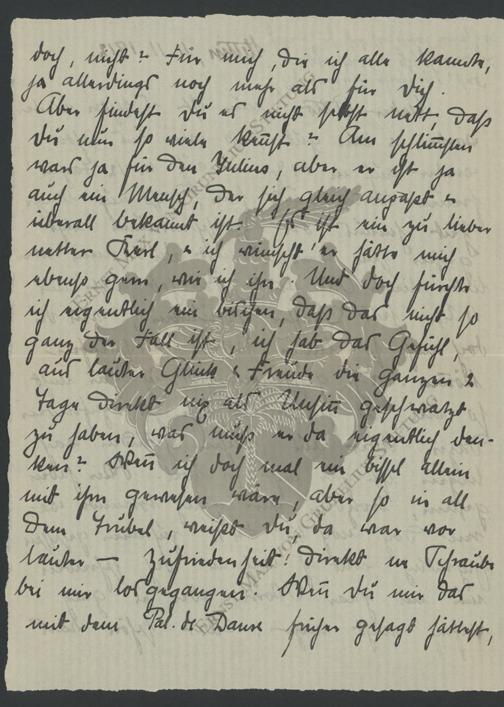 doch, nicht? Für mich, die ich alle kannte,
ja allerdings noch mehr als für Dich.
Aber findest Du es nicht selbst nett, daß
Du nun so viele kennst? Am schlimsten
wars ja für den Julius, aber er ist ja
auch ein Mensch, der sich gleich anpaßt &
überall bekannt ist. Es ist ein zu lieber
netter Kerl, & ich wünscht' er hätte mich
ebenso gern, wie ich ihn. Und doch fürchte
ich eigentlich ein bischen, daß das nicht so
ganz der Fall ist, ich hab das Gefühl,
aus lauter Glück & Freude die ganzen 2
Tage direkt nix als Unsinn geschwatzt
zu haben, was muß er da eigentlich den-
ken? Wenn ich doch mal ein bissl allein
mit ihm gewesen wäre, aber so in all
dem Trubel, weißt Du, da war vor
lauter — Zufriedenheit! direkt ne Schraube
bei mir losgegangen. Wenn Du mir das
mit dem Pal. de Danse früher gesagt hättest,